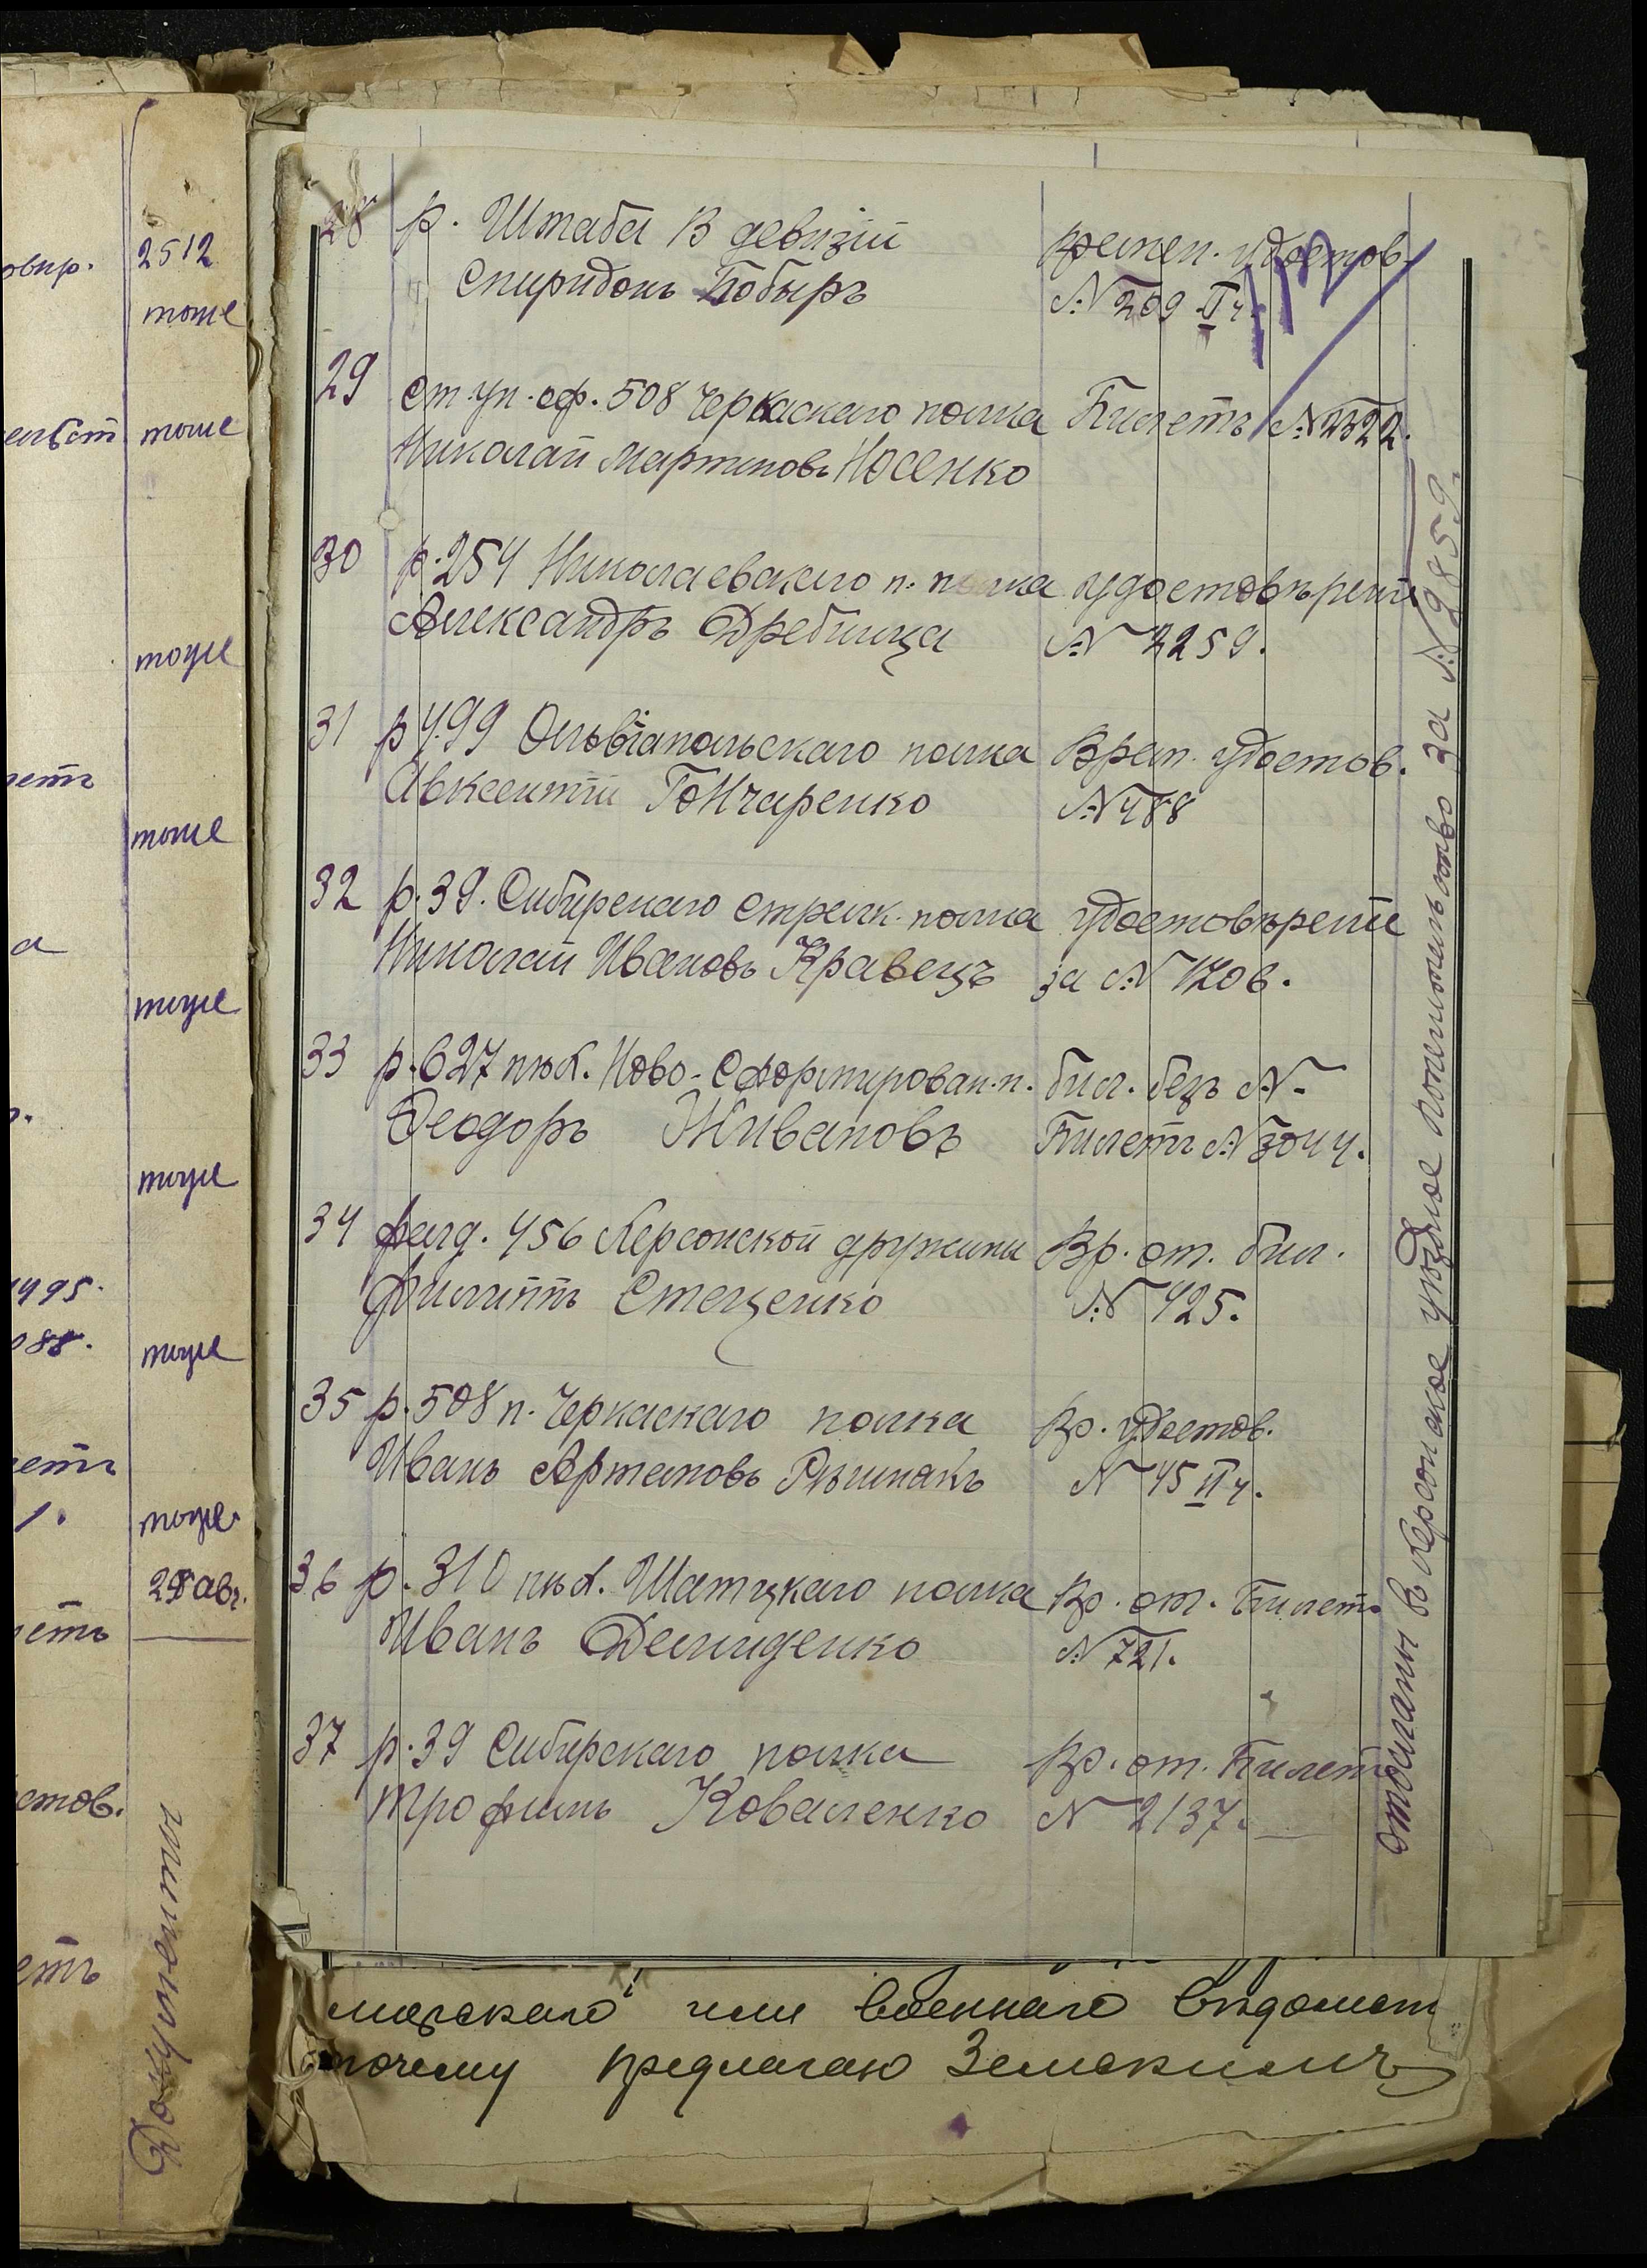 овир.
ельст
етъ
а
1495.
088.
етъ
1.
етъ
стов.
етъ
2512
тоже
тоже
тоже
тоже
тоже
тоже
тоже
тоже
29 авг.
Документы
28 р. Штаба 13 девизіи
Спиридонъ Бобырь
времен. удостов.
№ 269 II ч.
29 ст. ун. оф. 508 Черкаскаго полка
Николай Мартиновъ Носенко
Билетъ № 2322.
30 р. 254 Николаевскаго п. полка
Александръ Дребница
удостовърені
№ 3259.
31 р 499 Ольвіапольскаго полка
Авксентій Гончаренко
Врем. удостов.
№ 488
32 р. 39. Сибирскаго стрелк. полка
Николай Ивановъ Кравецъ
удостовърени
за № 1206.
33 р. 627 пѣх. Ново-Сформирован. п.
Феодоръ Живановъ
бил. безъ №
Билетъ № 3044.
34 фелд. 456 Херсонской дружини
Филиппъ Стеценко
Вр. от. бил.
№ 425.
35 р. 508 п. Черкаскаго полка
Иванъ Артемовъ
Вр. удостов.
№ 45 II ч.
36 р. 310 пѣх. Шатцкаго полка
Иванъ Демиденко
Вр. от. Билетъ
№ 721.
37 р. 39 Сибирскаго полка
Трофимъ Коваленко
Вр. от. Билет
№ 2137.
отосланы в Херсонское уѣздное попечительство за № 2859.
морскаго или военнаго вѣдомст
почему предлагаю Земскимъ